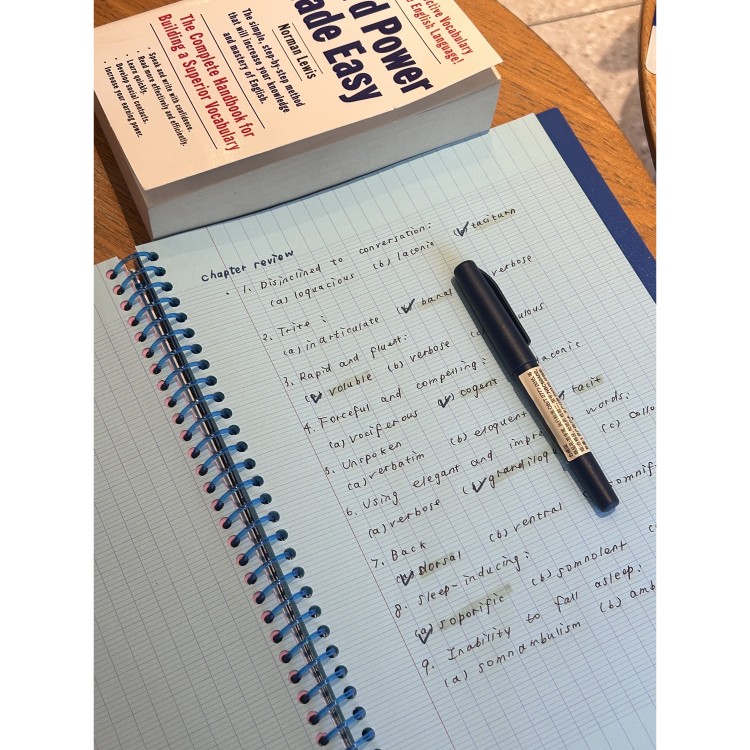 ective Vocabulary
English Language!
d Power
ade Easy
Norman Lewis
The simple, step-by-step method
that will increase your knowledge
and mastery of English.
The Complete Handbook for
Building a Superior Vocabulary
• Speak and write with confidence.
• Read more effectively and efficiently.
• Learn quickly.
• Develop social contacts.
• Increase your earning power.
chapter review
1. Disinclined to conversation:
(a) loquacious (b) laconic (c) taciturn
2. Trite:
(a) inarticulate banal verbose
3. Rapid and fluent:
voluble (b) verbose
4. Forceful and compelling:
(a) vociferous cogent laconic
5. Unspoken
(a) verbatim (b) eloquent tacit
6. Using elegant and impre words:
(a) verbose grandiloq (c) collo
7. Back
(a) dorsal (b) ventral
8. sleep-inducing:
(a) soporific (b) somnolent somnif
9. Inability to fall asleep:
(a) somnambulism (b) amb